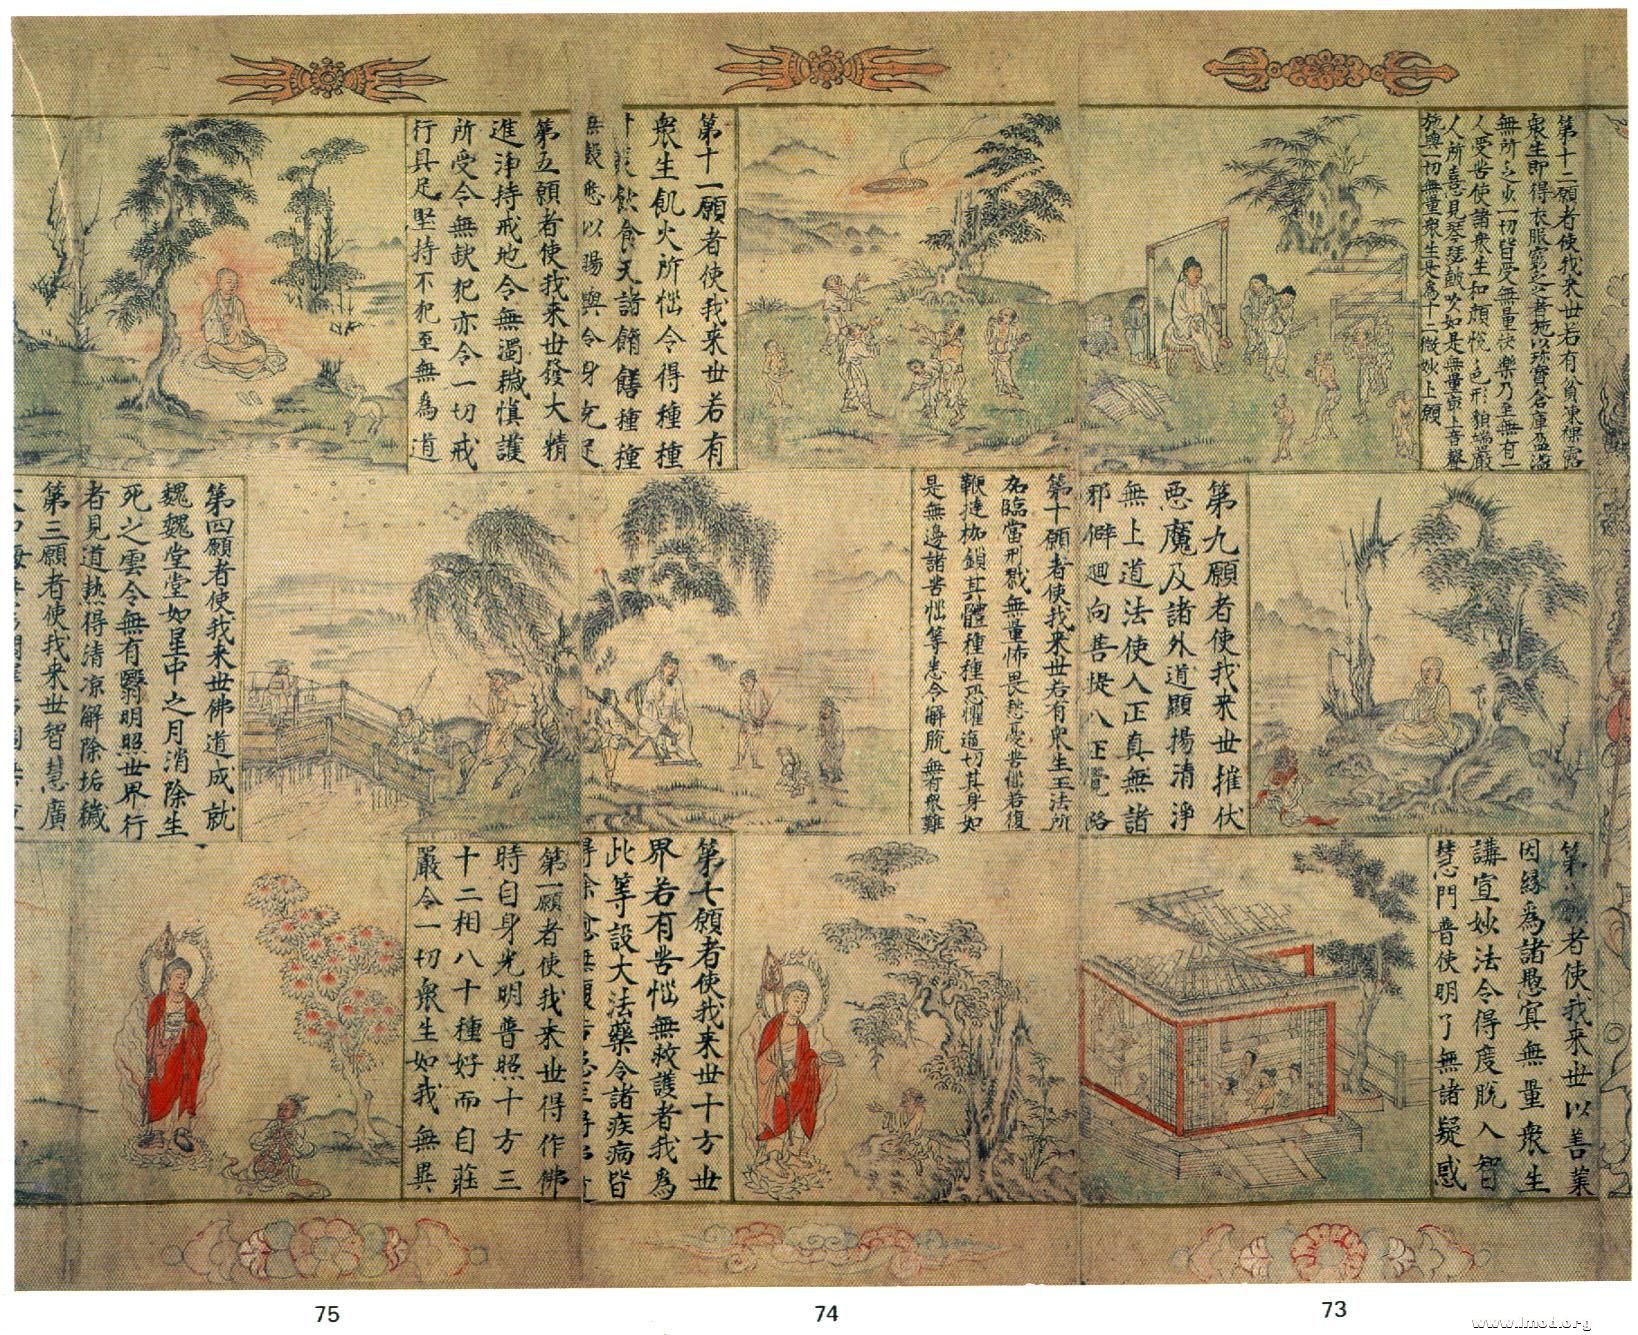 第十二願者使我来世若有貧凍裸露
衆生即得衣服窮乏之者施以珍寶倉庫盈溢
無所乏少一切皆受無量快樂乃至無有一
人受苦使諸衆生和顏悅色形貌端嚴
人所喜見琴瑟鼓吹如是無量最上音聲
施與一切無量衆生是為十二微妙上願
第十一願者使我来世若有
衆生飢火所惱令得種種
美飲食天諸餚饍種種
無數悉以賜與令身充足
第五願者使我来世發大精
進淨持戒地令無濁穢慎護
所受令無缺犯亦令一切戒
行具足堅持不犯至無為道
第九願者使我来世摧伏
悪魔及諸外道顯揚清淨
無上道法使入正真無諸
邪僻廻向菩提八正覺路
第十願者使我来世若有衆生王法所
加臨當刑戮無量怖畏愁憂苦惱若復
鞭撻枷鎖其體種種恐懼逼切其身如
是無邊諸苦惱等悉令解脫無有衆難
第四願者使我来世佛道成就
巍巍堂堂如星中之月消除生
死之雲令無有翳明照世界行
者見道熱得清凉解除垢穢
第三願者使我来世智慧廣
第八願者使我来世以善業
因緣為諸愚冥無量衆生
講宣妙法令得度脫入智
慧門普使明了無諸疑惑
第七願者使我来世十方世
界若有苦惱無救護者我為
此等設大法藥令諸疾病皆
第一願者使我来世得作佛
時自身光明普照十方三
十二相八十種好而自莊
嚴令一切衆生如我無異
75 74 73
www.lmod.org